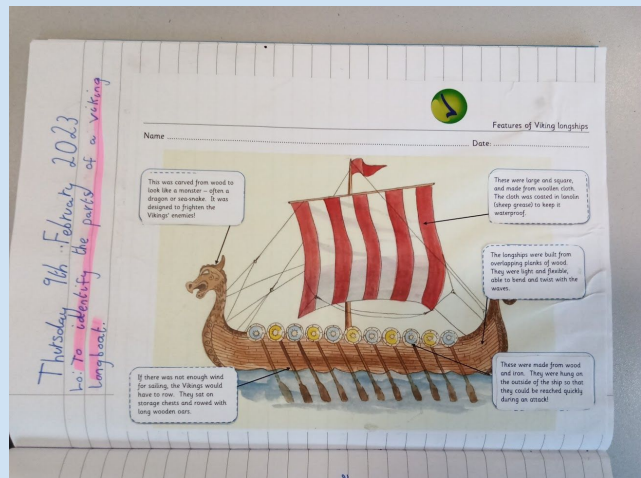 Thursday 9th February 2023
Lo: To identify the parts of a viking
longboat.
Features of Viking longships
Name
Date:
This was carved from wood to
look like a monster – often a
dragon or sea-snake. It was
designed to frighten the
Vikings' enemies!
These were large and square,
and made from woollen cloth.
The cloth was coated in lanolin
(sheep grease) to keep it
waterproof.
The longships were built from
overlapping planks of wood.
They were light and flexible,
able to bend and twist with the
waves.
If there was not enough wind
for sailing, the Vikings would
have to row. They sat on
storage chests and rowed with
long wooden oars.
These were made from wood
and iron. They were hung on
the outside of the ship so that
they could be reached quickly
during an attack!